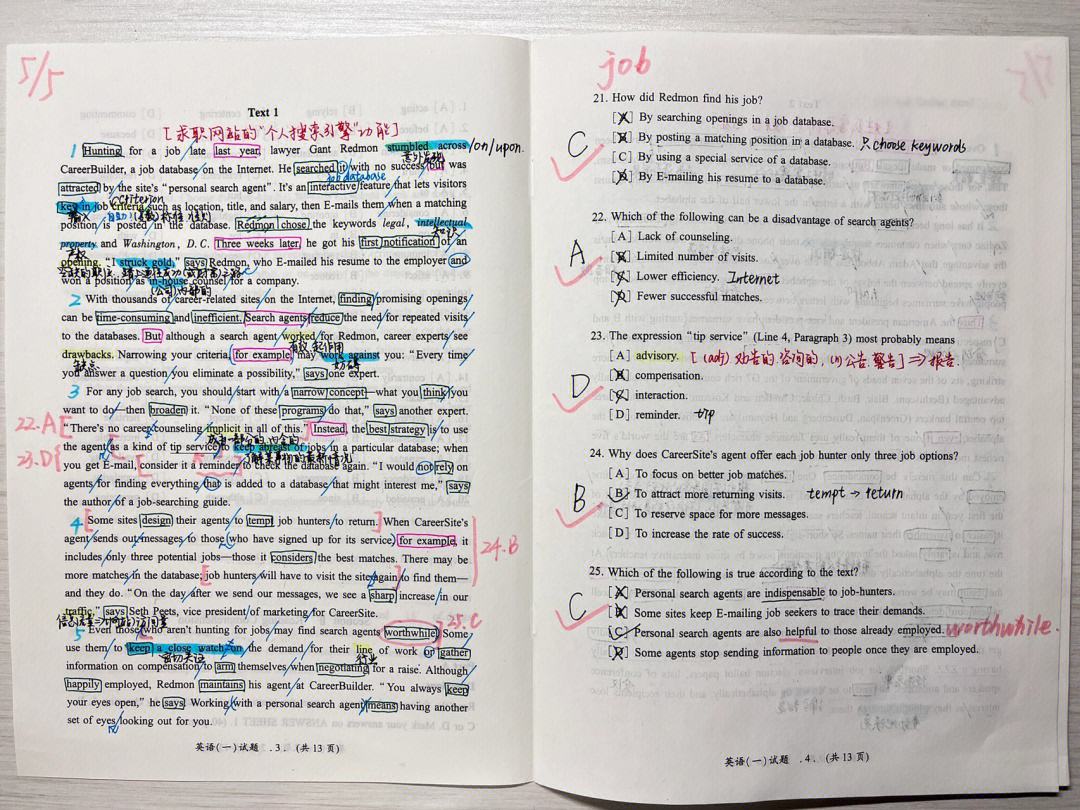 5/5
Text 1
[求职网站的"个人搜索引擎"功能]
1 Hunting for a job late last year, lawyer Gant Redmon stumbled across /on/upon.
意外发现
CareerBuilder, a job database on the Internet. He searched it with no success but was
job database
attracted by the site's "personal search agent". It's an interactive feature that lets visitors
criterion
key in job criteria such as location, title, and salary, then E-mails them when a matching
输入
position is posted in the database. Redmon chose the keywords legal, intellectual
知识
property and Washington, D.C. Three weeks later, he got his first notification of an
产权
opening. "I struck gold," says Redmon, who E-mailed his resume to the employer and
won a position as in-house counsel for a company.
(公司)内部的
2 With thousands of career-related sites on the Internet, finding promising openings
can be time-consuming and inefficient. Search agents reduce the need for repeated visits
to the databases. But although a search agent worked for Redmon, career experts see
有效 起作用
drawbacks. Narrowing your criteria, for example, may work against you: "Every time
缺点 妨碍
you answer a question you eliminate a possibility," says one expert.
3 For any job search, you should start with a narrow concept—what you think you
want to do—then broaden it. "None of these programs do that," says another expert.
22.A [ "There's no career counseling implicit in all of this." Instead, the best strategy is to use
23.D { the agent as a kind of tip service to keep abreast of jobs in a particular database; when
了解某事物的最新情况
you get E-mail, consider it a reminder to check the database again. "I would not rely on
agents for finding everything that is added to a database that might interest me," says
the author of a job-searching guide.
4 [ Some sites design their agents to tempt job hunters to return. ] When CareerSite's
agent sends out messages to those who have signed up for its service, for example, it
includes only three potential jobs—those it considers the best matches. There may be
24.B
more matches in the database; job hunters will have to visit the site again to find them—
and they do. "On the day after we send our messages, we see a sharp increase in our
traffic," says Seth Peets, vice president of marketing for CareerSite.
25.C
5 Even those who aren't hunting for jobs may find search agents worthwhile. Some
use them to keep a close watch on the demand for their line of work or gather
密切关注 行业
information on compensation to arm themselves when negotiating for a raise. Although
happily employed, Redmon maintains his agent at CareerBuilder. "You always keep
your eyes open," he says. Working with a personal search agent means having another
set of eyes looking out for you.
英语(一)试题 .3. (共13页)
job
21. How did Redmon find his job?
[A] By searching openings in a job database.
[B] By posting a matching position in a database. 只chose keywords
C
[C] By using a special service of a database.
[D] By E-mailing his resume to a database.
22. Which of the following can be a disadvantage of search agents?
[A] Lack of counseling.
A
[B] Limited number of visits.
[C] Lower efficiency. Internet
[D] Fewer successful matches.
23. The expression "tip service" (Line 4, Paragraph 3) most probably means
[A] advisory. [(adj) 劝告的.咨询的, (n)公告.警告] ⇒ 报告.
[B] compensation.
D
[C] interaction.
[D] reminder. tip
24. Why does CareerSite's agent offer each job hunter only three job options?
[A] To focus on better job matches.
B
[B] To attract more returning visits. tempt → return
[C] To reserve space for more messages.
[D] To increase the rate of success.
25. Which of the following is true according to the text?
[A] Personal search agents are indispensable to job-hunters.
C
[B] Some sites keep E-mailing job seekers to trace their demands.
[C] Personal search agents are also helpful to those already employed. worthwhile.
[D] Some agents stop sending information to people once they are employed.
英语(一)试题 .4. (共13页)